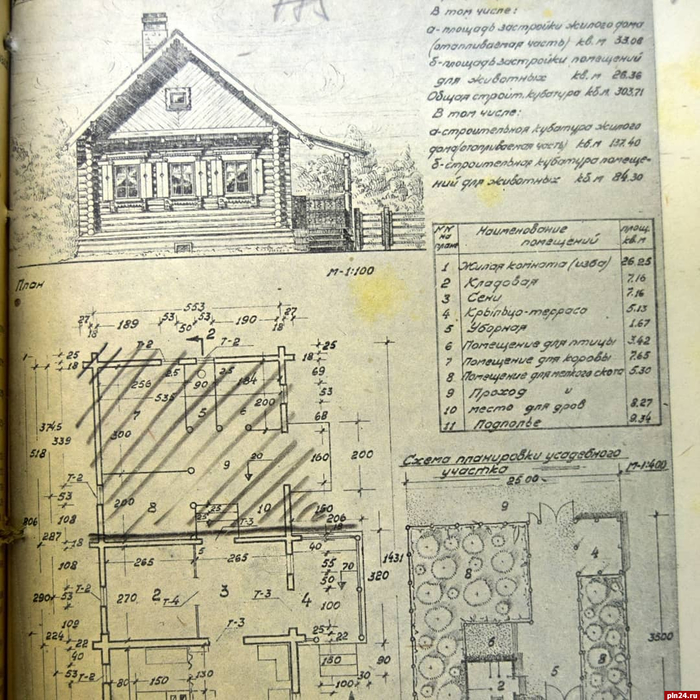 В том числе:
а-площадь застройки жилого дома
(отапливаемая часть) кв.м 33.06
б-площадь застройки помещений
для животных кв.м 26.36
Общая строит. кубатура кб.м 303.71
В том числе:
а-строительная кубатура жилого
дома(отапливаемая часть) кб.м 137.40
б-строительная кубатура помеще-
ний для животных кб.м 84.30
№№ на плане Наименование помещений площ. кв.м
1 Жилая комната (изба) 26.25
2 Кладовая 7.16
3 Сени 7.16
4 Крыльцо-терраса 5.13
5 Уборная 1.67
6 Помещение для птицы 3.42
7 Помещение для коровы 7.65
8 Помещение для мелкого скота 5.30
9 Проход и
10 место для дров 8.27
11 Подполье 9.34
План
М-1:100
553
27 53 53 27
18 189 50 190 18
2
Т-2 Т-2
25 25
18 18
25 25 69
256 90 184
53
535 200
7 5 6 68
3745 300
339
518 9 20 160 200
Т-2
53 200 8 10 150
25 25 Т-3 206
806 108 18
287 18 40 1431
5
265 265 55
108 70
Т-2 50 320
290 53 270 2 Т-4 3 Т-3 4 100
109
Т-3 25
224 22 22
40
53 Т-2 130 150 90
80 150 30
100
Схема планировки усадебного
участка М-1:400
25.00
9
4
8
6
8
2 5
3500
pln24.ru